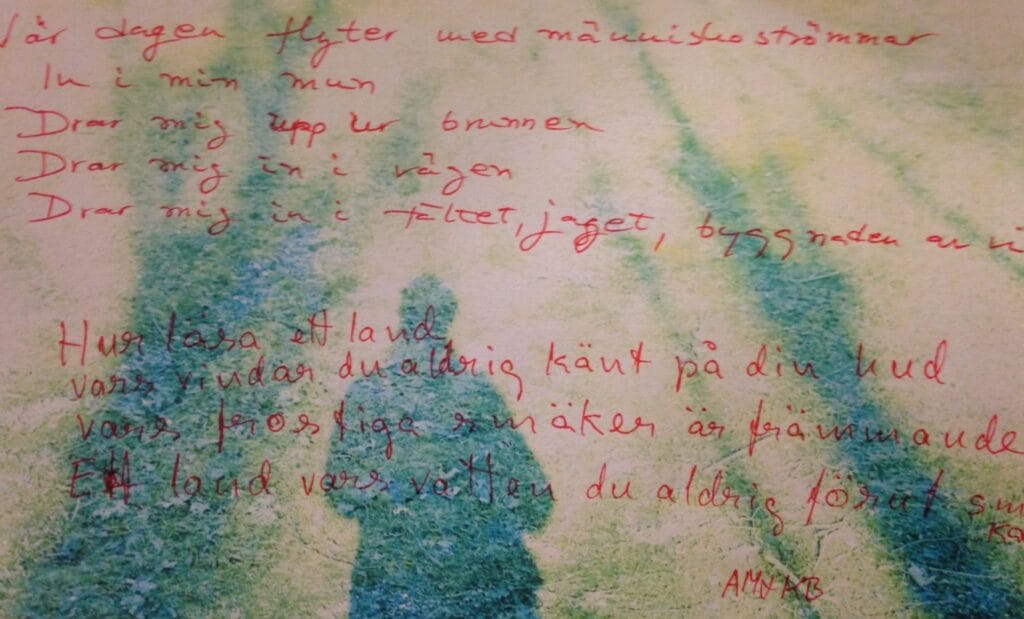 När dagen flyter med människoströmmar
In i min mun
Drar mig upp ur brunnen
Drar mig in i vågen
Drar mig in i fältet, jaget, byggnaden av vi
Hur läsa ett land
vars vindar du aldrig känt på din hud
vars frostiga smäker är främmande
Ett land vars vatten du aldrig förut sm
ka